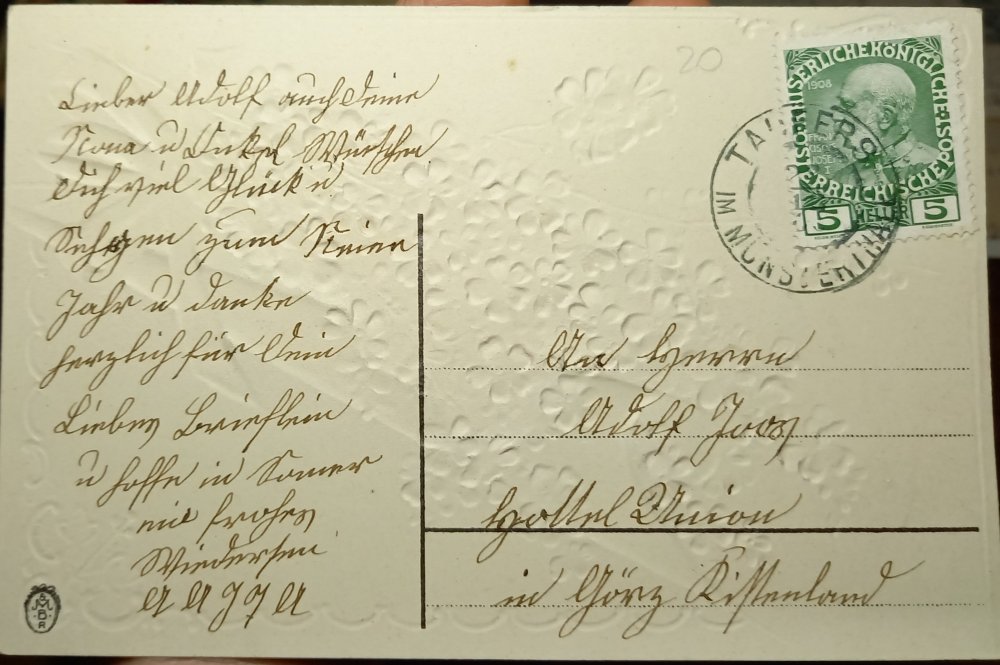 Lieber Adolf auch deine
Nona u Onkel Würschen
dich viel Glück u
Sehgen zum Neien
Jahr u danke
herzlich für dein
Liebes Brieflein
u hoffe in Somer
ein frohes
Wiedersen
20
KAISERLICHE KÖNIGLICHE
ÖSTERREICHISCHE POST
1908
5 HELLER 5
TAUFERS
IM MÜNSTERTHALE
An Herrn
Adolf Joos
Hottel Union
in Görz Kistenland